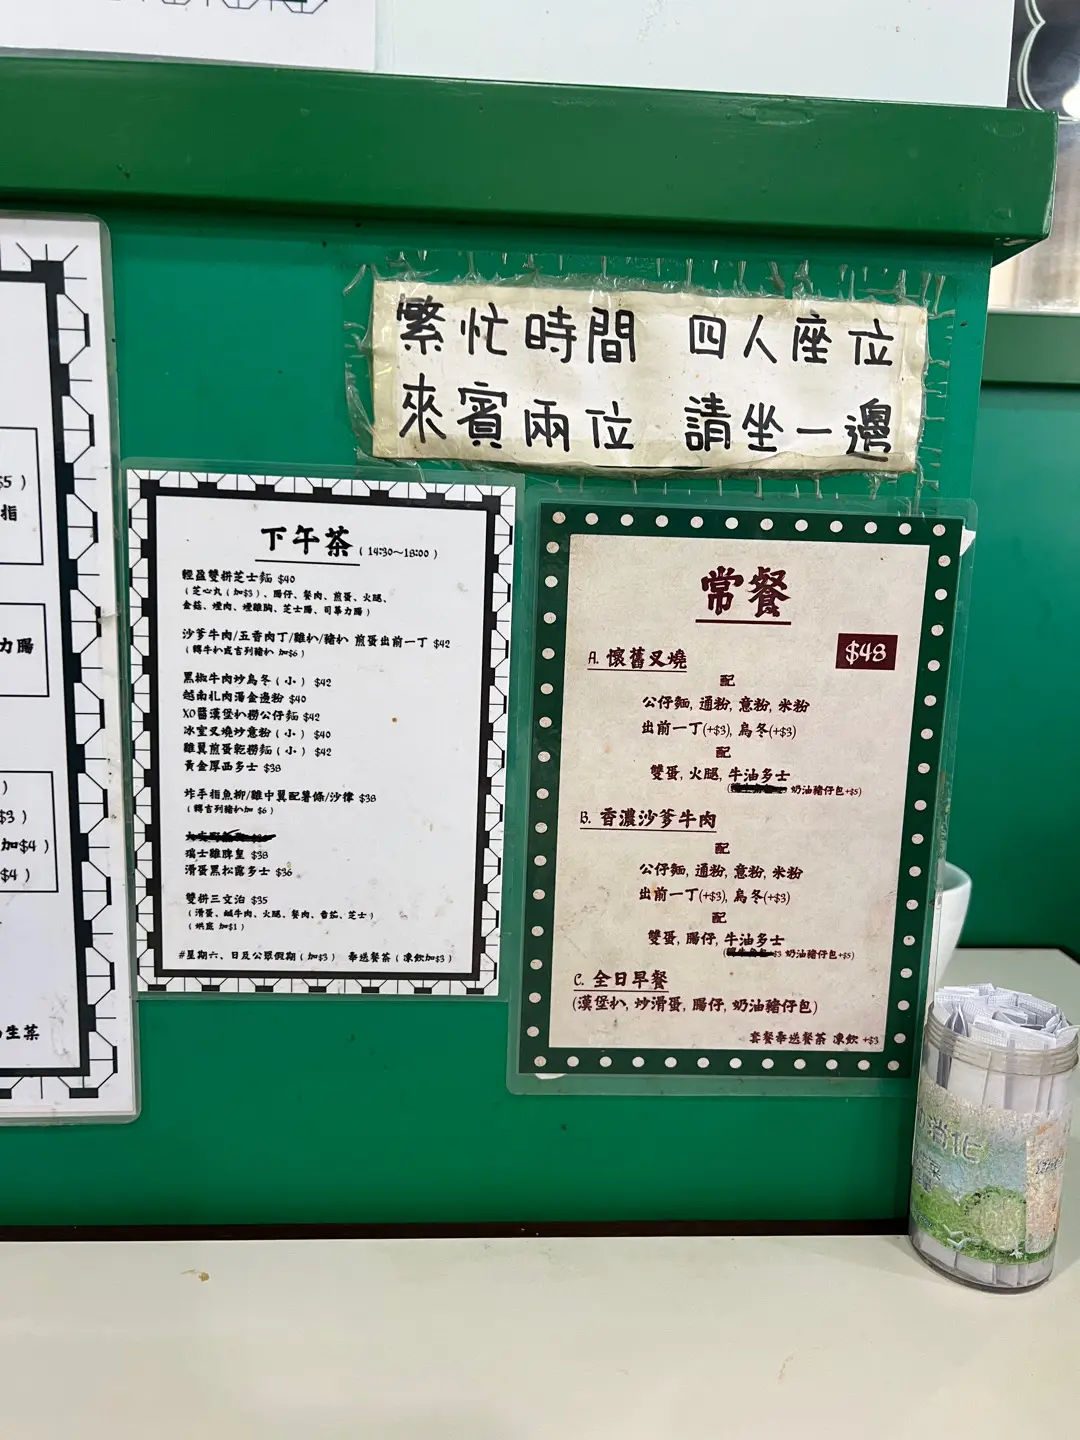 繁忙時間 四人座位
來賓兩位 請坐一邊
$5 )
指
力腸
)
$3 )
加$4 )
$4 )
生菜
下午茶 ( 14:30~18:00 )
輕盈雙拼芝士麵 $40
( 芝心丸 ( 加$3 ) 、腸仔、餐肉、煎蛋、火腿、
金菇、煙肉、煙雞胸、芝士腸、司華力腸 )
沙爹牛肉/五香肉丁/雞扒/豬扒 煎蛋出前一丁 $42
( 轉牛扒或吉列豬扒 加$6 )
黑椒牛肉炒烏冬 ( 小 ) $42
越南扎肉湯金邊粉 $40
XO醬漢堡扒撈公仔麵 $42
冰室叉燒炒意粉 ( 小 ) $40
雞翼煎蛋乾撈麵 ( 小 ) $42
黃金厚西多士 $38
炸手指魚柳/雞中翼配薯條/沙律 $38
( 轉吉列豬扒加 $6 )
瑞士雞脾皇 $38
滑蛋黑松露多士 $36
雙拼三文治 $35
( 滑蛋、鹹牛肉、火腿、餐肉、番茄、芝士 )
( 烘底 加$1 )
#星期六、日及公眾假期 ( 加$3 ) 奉送餐茶 ( 凍飲加$3 )
常餐
$48
A. 懷舊叉燒
配
公仔麵, 通粉, 意粉, 米粉
出前一丁(+$3), 烏冬(+$3)
配
雙蛋, 火腿, 牛油多士
奶油豬仔包+$5)
B. 香濃沙爹牛肉
配
公仔麵, 通粉, 意粉, 米粉
出前一丁(+$3), 烏冬(+$3)
配
雙蛋, 腸仔, 牛油多士
奶油豬仔包+$5)
C. 全日早餐
(漢堡扒, 炒滑蛋, 腸仔, 奶油豬仔包)
套餐奉送餐茶 凍飲 +$3
消化